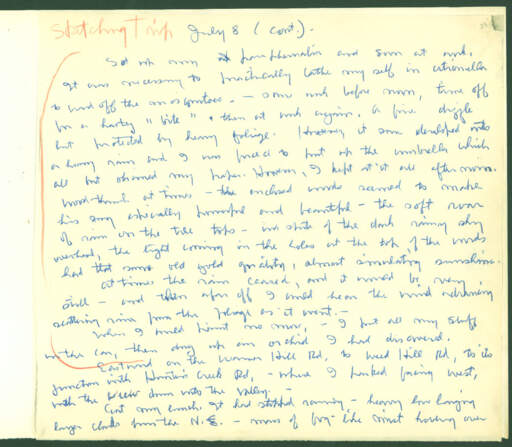 Sketching Trip July 8 (cont.).
Set up my and soon at work.
It was necessary to practically bathe my self in citronella
to ward off the mosquitoes. - some work before noon, time off
for a hearty "bite" & then at work again. A fine drizzle
but protected by heavy foliage. However it soon developed into
a heavy rain and I was forced to put up the umbrella which
all but obscured my paper. However, I kept at it all afternoon.
Wood-thrush at times - the enclosed woods seemed to make
his song especially powerful and beautiful - the soft roar
of rain on the tree tops - in spite of the dark rainy sky
overhead, the light coming in the holes at the top of the woods
had that same old gold quality, almost simulating sunshine.
At times the rain ceased, and it would be very
still - and then afar off I would hear the wind advancing
scattering rain from the foliage as it went. -
When I could paint no more, - I put all my stuff
in the car, then dug up an orchid I had discovered.
Eastward on the Hill Rd, to Weed Hill Rd, to its
junction with Creek Rd, - where I parked facing west,
with the view down into the valley. -
Eat my lunch. It had stopped raining - heavy low hanging
large clouds from the N.E. - mass of fog-like mist hovering over